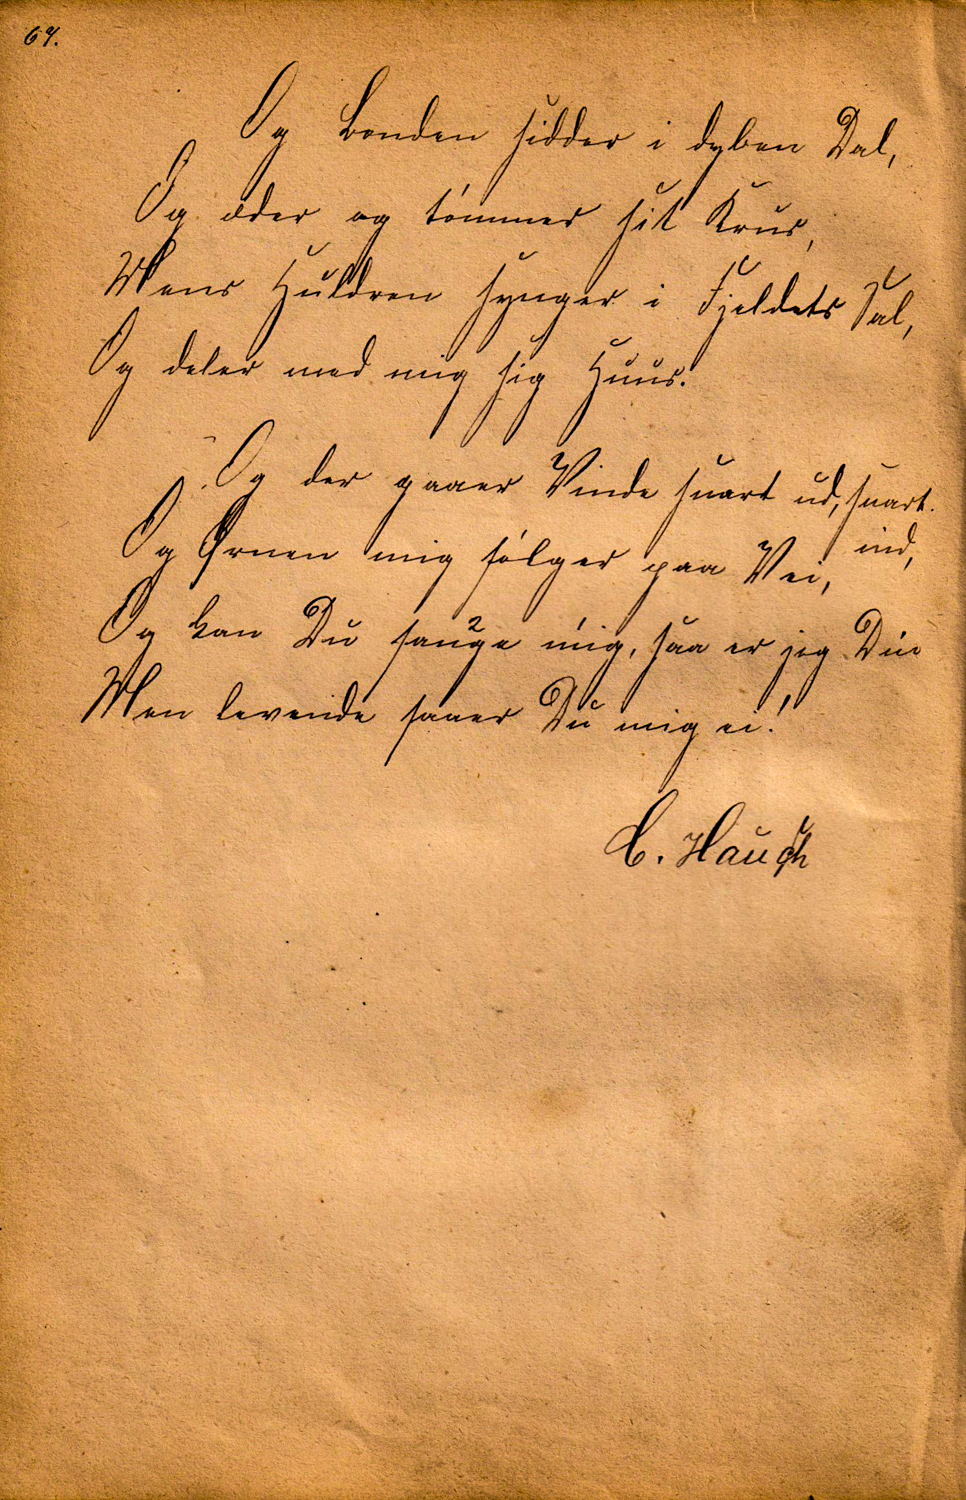 64.
Og Bonden sidder i dyben Dal,
Og æder og tømmer sit Krus,
Mens Huldren synger i Fjeldets Sal,
Og deler med mig sig Huus.
Og der gaaer Vinde snart ud, snart
ind,
Og Ørnen mig følger paa Vei,
Og kan Du fange mig, saa er jeg Din
Men levende faaer Du mig ei!
C. Hauch